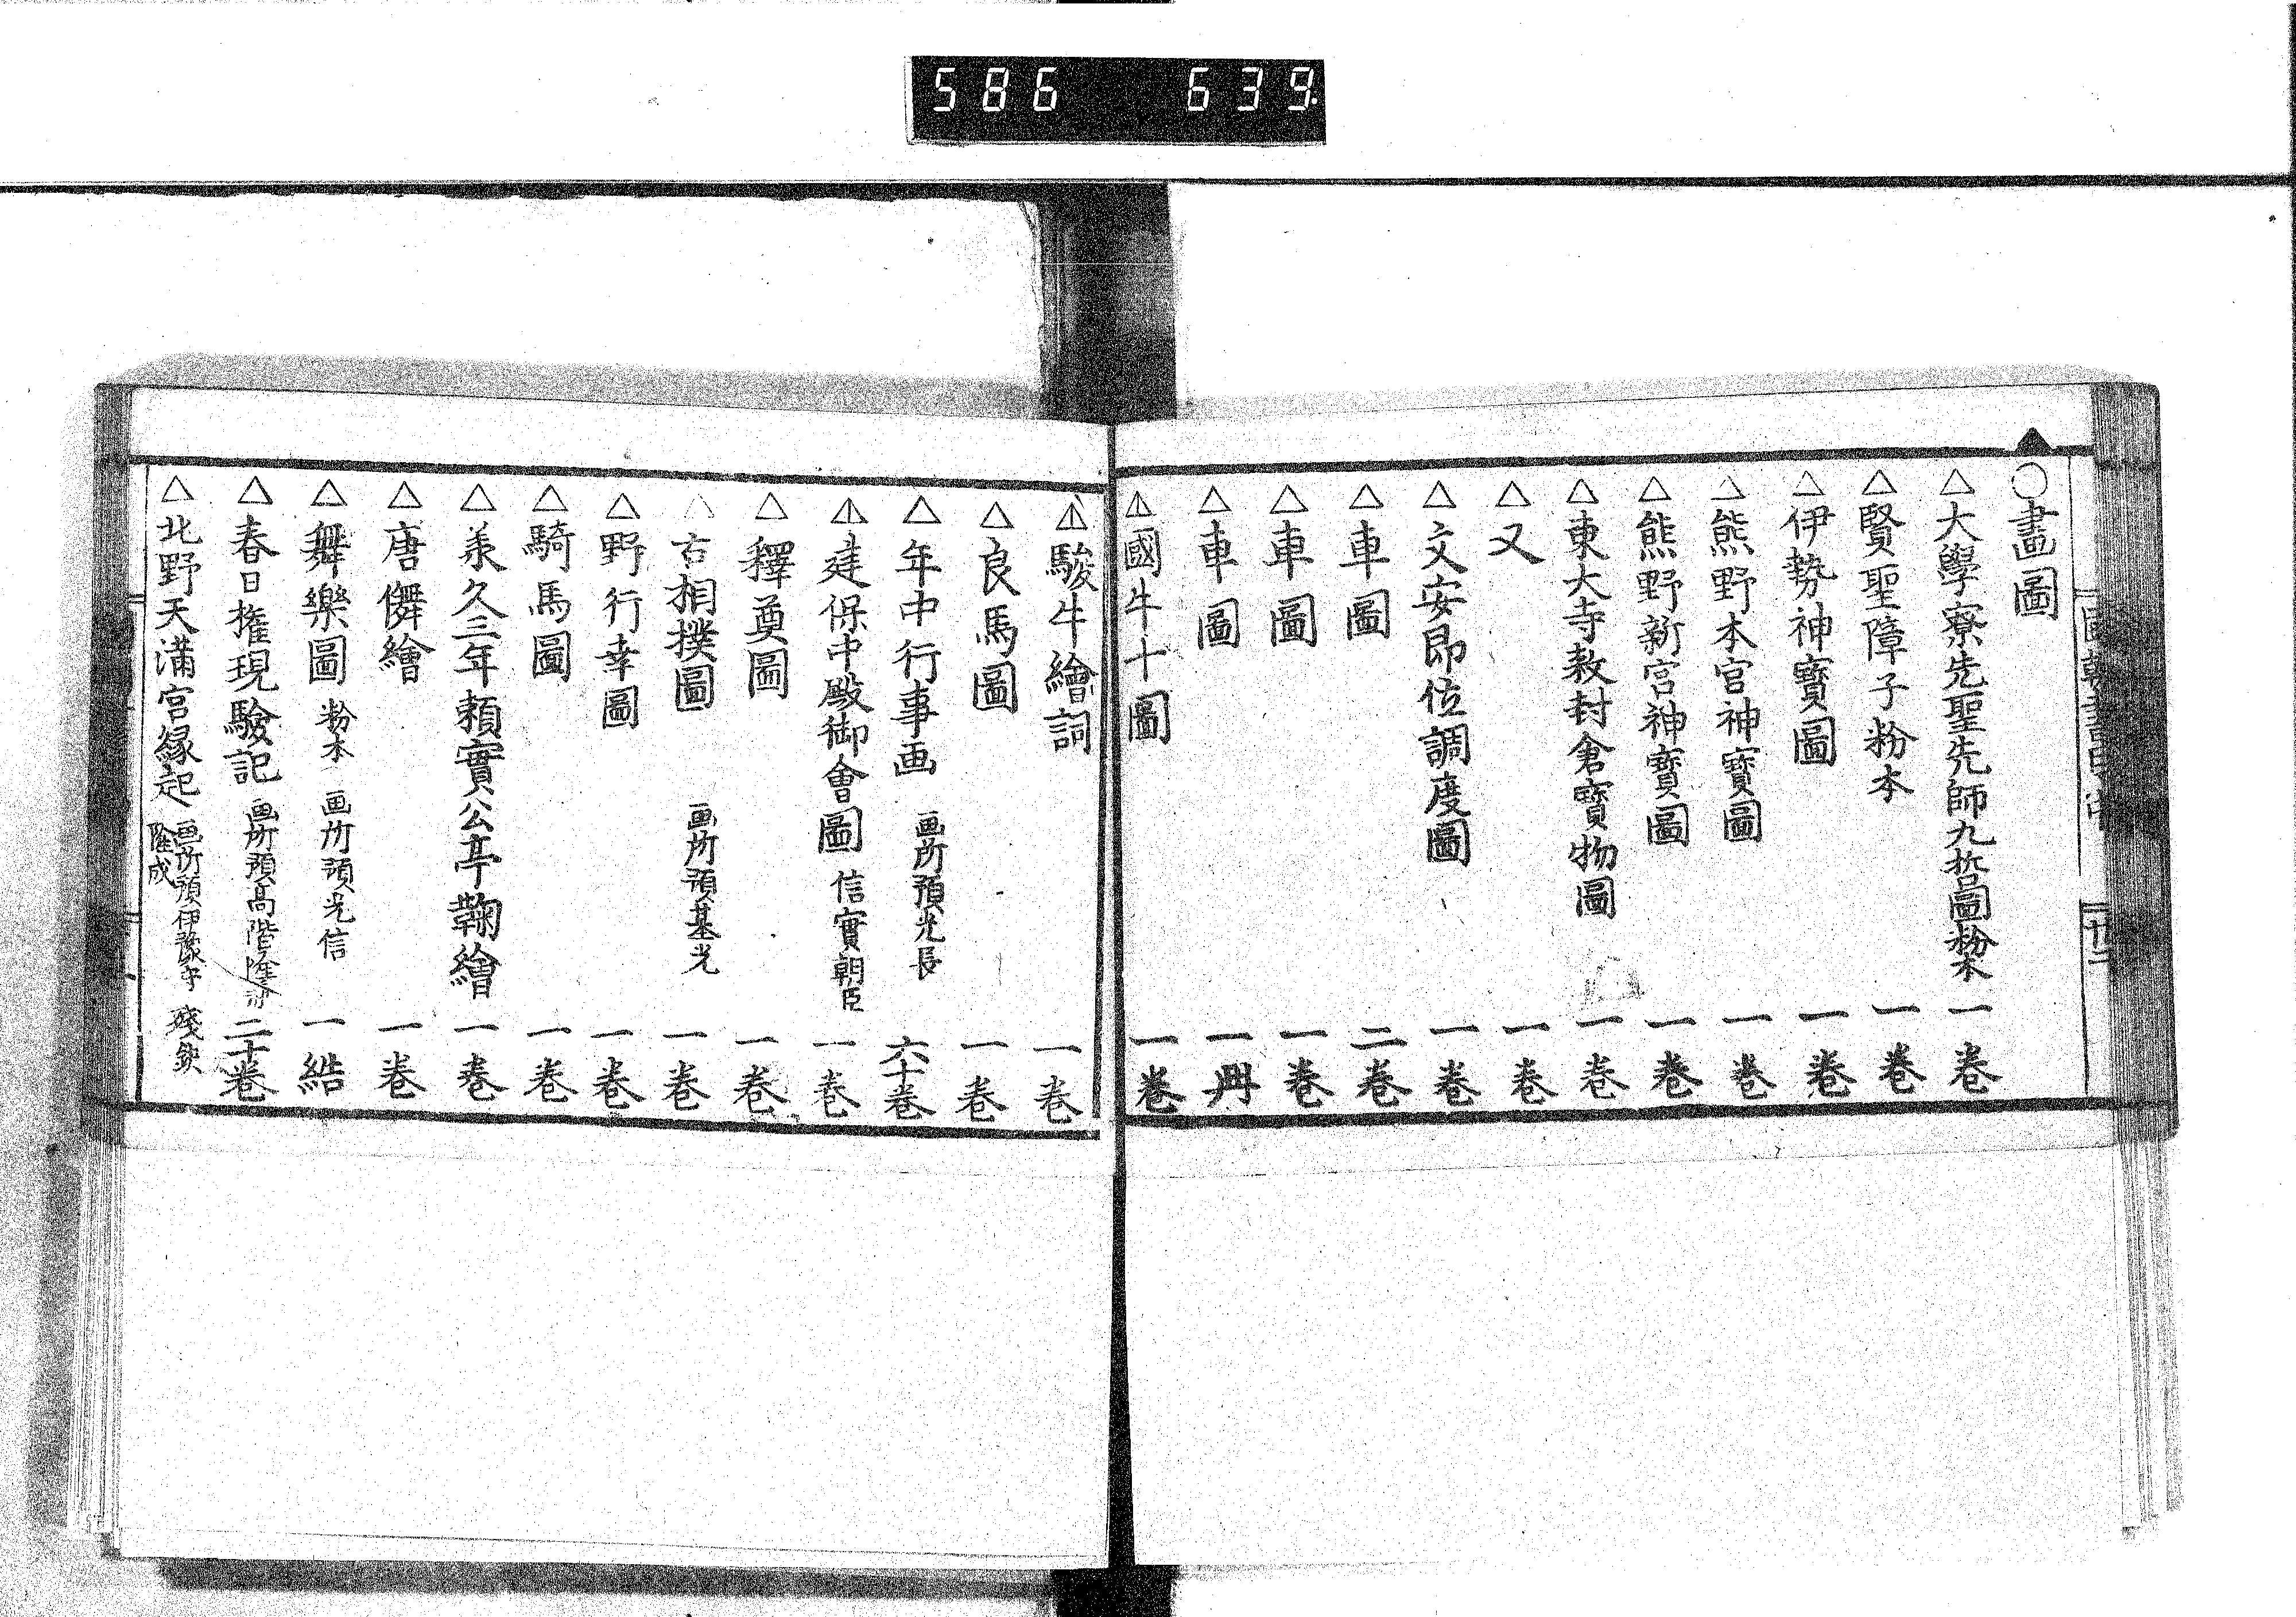 586 639
○畫圖
△大學寮先聖先師九哲圖粉本 一卷
△賢聖障子粉本 一卷
△伊勢神寶圖 一卷
△熊野本宮神寶圖 一卷
△熊野新宮神寶圖 一卷
△東大寺勅封倉寶物圖 一卷
△又 一卷
△文安即位調度圖 一卷
△車圖 二卷
△車圖 一卷
△車圖 一冊
△國牛十圖 一卷
△駿牛繪詞 一卷
△良馬圖 一卷
△年中行事画 画所預光長 六十卷
△建保中殿御會圖 信實朝臣 一卷
△釋奠圖 一卷
△古相撲圖 画所預基光 一卷
△野行幸圖 一卷
△騎馬圖 一卷
△承久三年頼實公亭鞠繪 一卷
△唐儛繪 一卷
△舞樂圖 粉本 画所預光信 一結
△春日権現驗記 画所預高階隆 二十卷
△北野天満宮縁起 画所預伊豫守隆成 殘欽